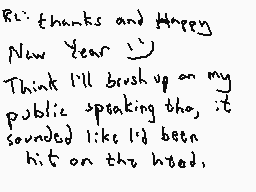 Re: thanks and Happy
New Year
Think I'll brush up on my
public speaking tho, it
sounded like I'd been
hit on the head.